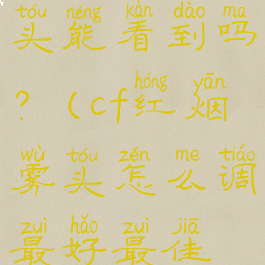 tóu néng kàn dào ma
头能看到吗
hóng yān
？（cf红烟
wù tóu zěn me tiáo
雾头怎么调
zuì hǎo zuì jiā
最好最佳